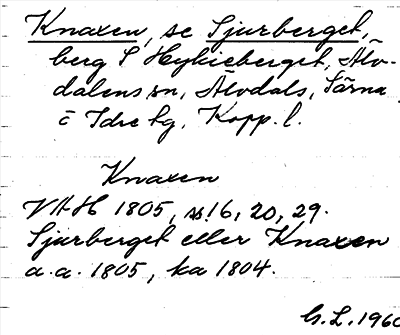 Knaxen, se Sjurberget,
berg S Hykieberget, Älv-
dalens sn, Älvdals, Särna
o Idre tg, Kopp. l.
Knaxen
VAH 1805, s! 6, 20, 29.
Sjurberget eller Knaxen
a. a. 1805, ka 1804.
G. L. 1960